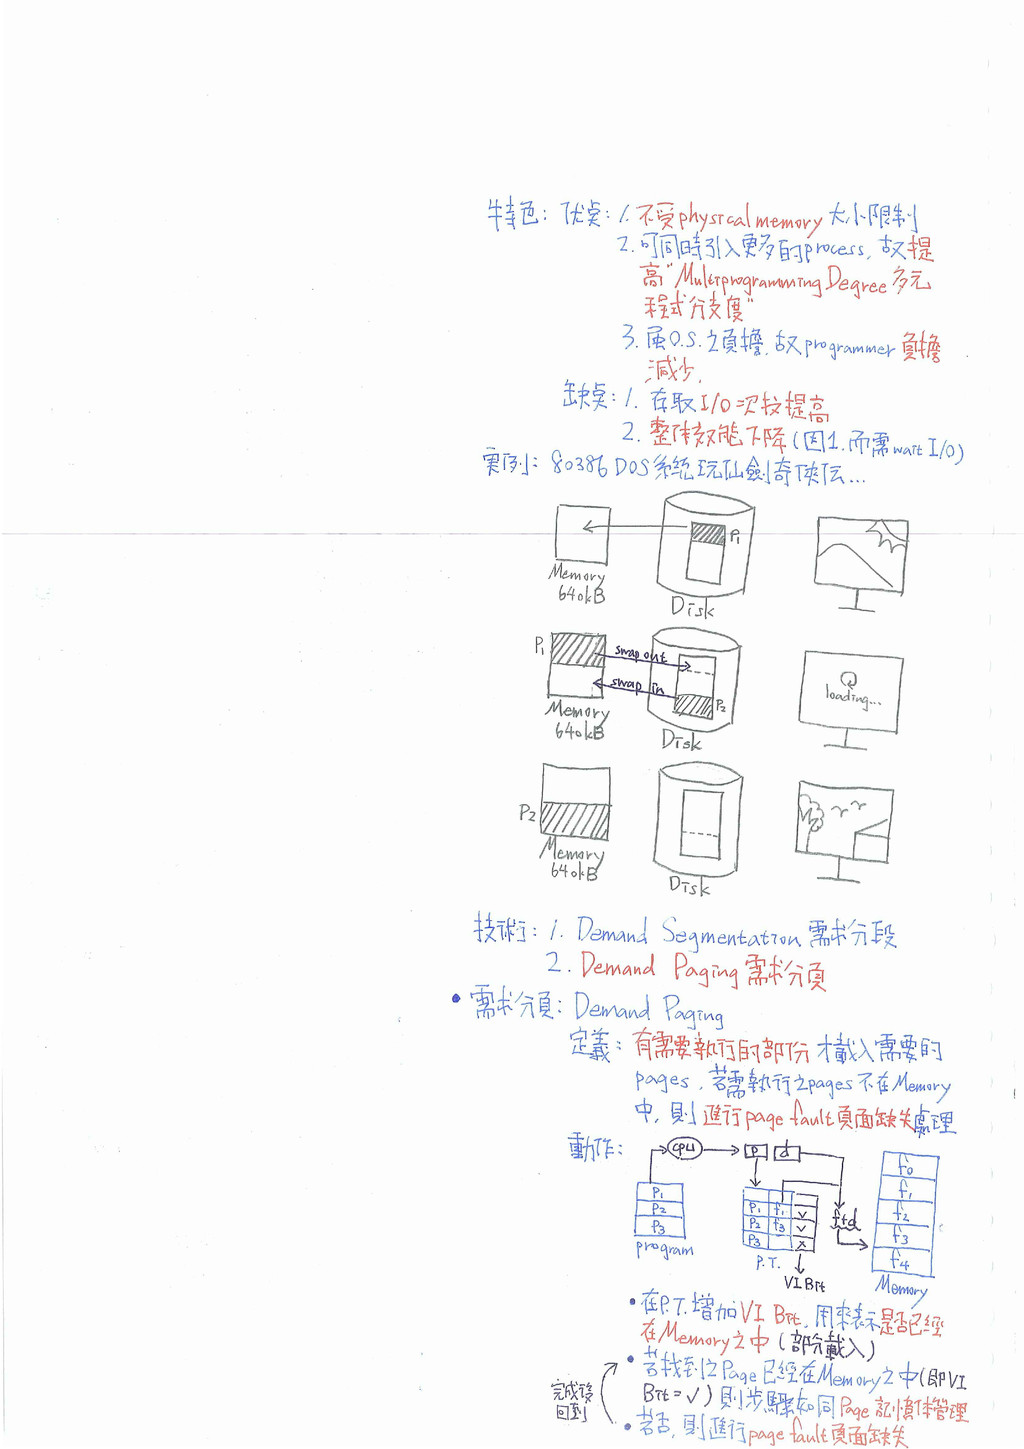 特色: 优点: 1. 不受physical memory 大小限制
2. 可同時引入更多的process, 故提
高"Multiprogramming Degree 多元
程式分支度"
3. 屬O.S.之負擔, 故programmer 負擔
減少.
缺点: 1. 存取I/O次校提高
2. 整体效能下降(因1.而需wait I/O)
實例: 80386 DOS系統玩仙劍奇俠伝...
P1
Memory
640kB
Disk
P1
swap out
swap in
P2
Memory
640kB
Disk
loading...
P2
Memory
640kB
Disk
技術: 1. Demand Segmentation 需求分段
2. Demand Paging 需求分頁
• 需求分頁: Demand Paging
定義: 有需要執行的部份才載入需要的
pages, 若需執行之pages 不在Memory
中, 則進行page fault頁面缺失處理
動作:
CPU
P d
P1
P2
P3
program
P1 f1 v
P2 f3 v
P3 x
P.T.
VI Bit
f+d
f0
f1
f2
f3
f4
Memory
• 在P.T.增加VI Bit, 用來表示是否已經
在Memory之中(部份載入)
• 若找到之Page已經在Memory之中(即VI
Bit=✓)則步驟如同Page記憶体管理
完成後
回到
• 若否, 則進行page fault頁面缺失